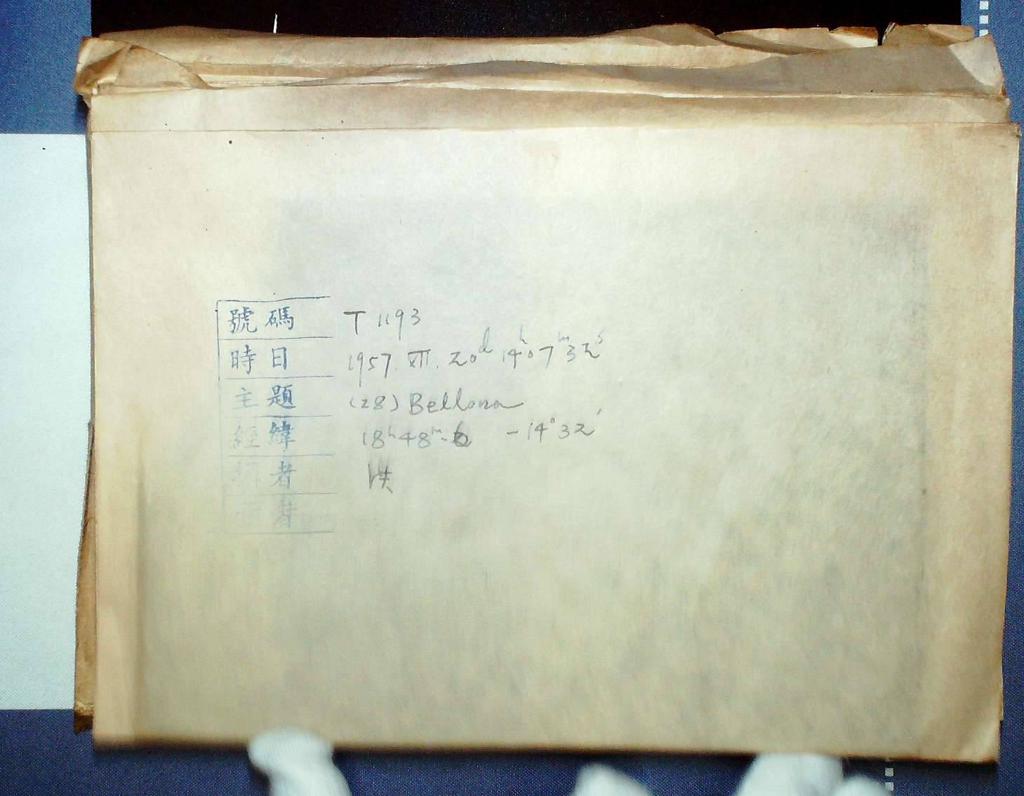 號碼 T 1193
時日 1957. VII. 20ᵈ 14ʰ07ᵐ32ˢ
主題 (28) Bellona
經緯 18ʰ48ᵐ.6 -14°32′
者
者